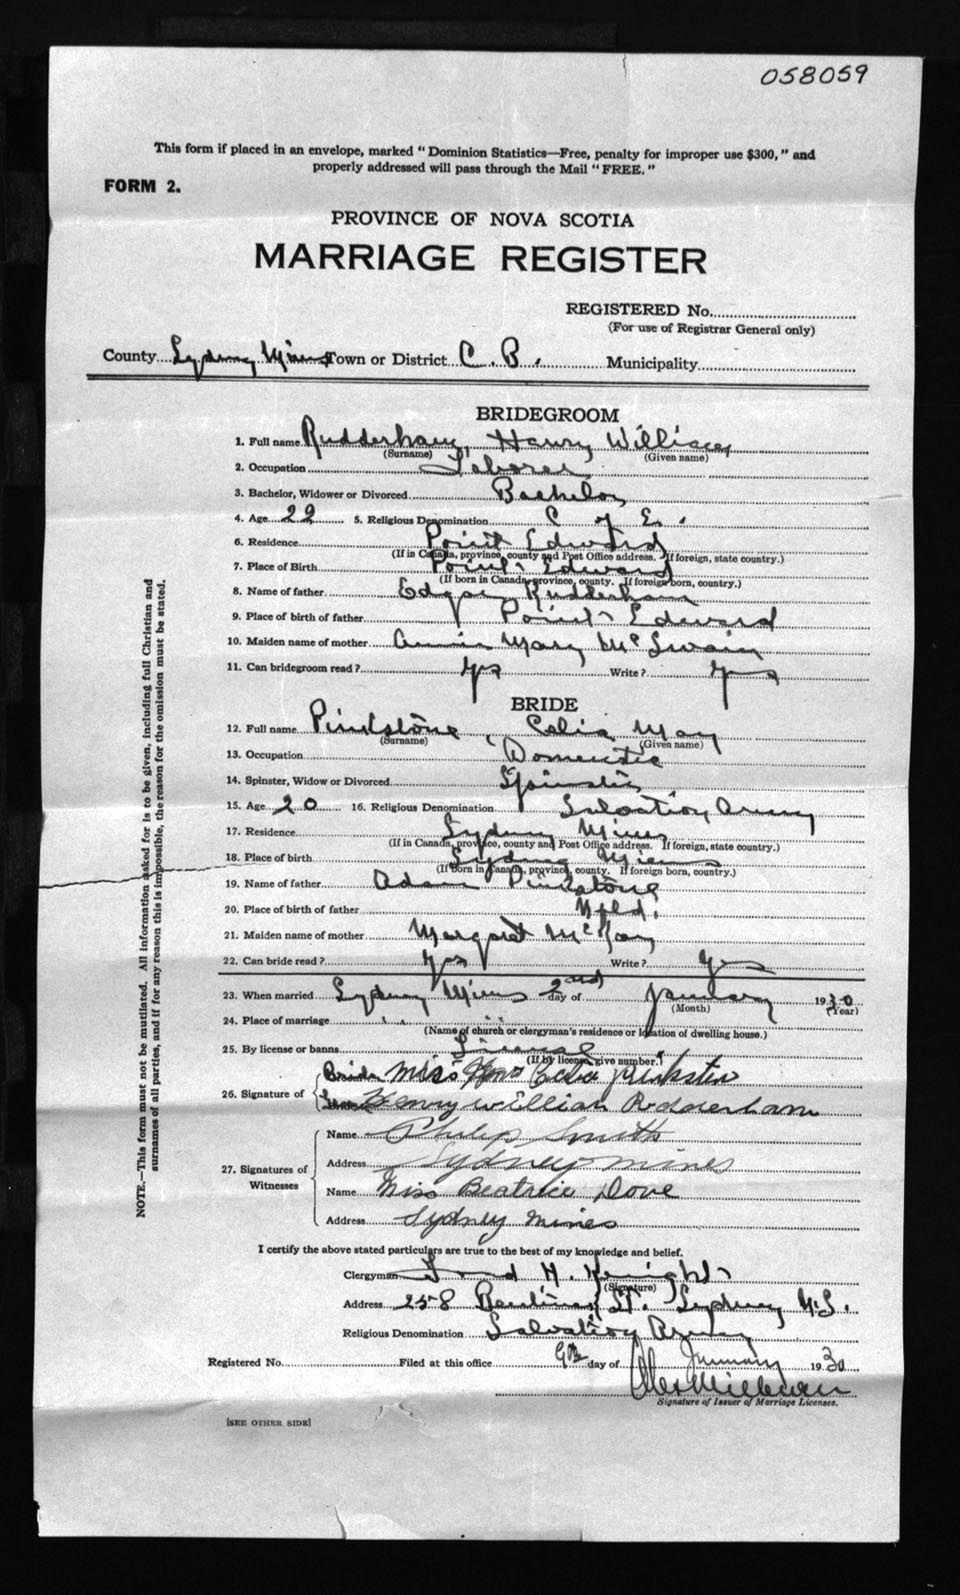 058059
This form if placed in an envelope, marked "Dominion Statistics—Free, penalty for improper use $300," and
properly addressed will pass through the Mail "FREE."
FORM 2.
PROVINCE OF NOVA SCOTIA
MARRIAGE REGISTER
REGISTERED No.
(For use of Registrar General only)
County Sydney Mines Town or District C. B. Municipality
BRIDEGROOM
1. Full name Rudderham, Harry William
(Surname) (Given name)
2. Occupation Laborer
3. Bachelor, Widower or Divorced Bachelor
4. Age 22 5. Religious Denomination C of E.
6. Residence Point Edward
(If in Canada, province, county and Post Office address. If foreign, state country.)
7. Place of Birth Point Edward
(If born in Canada, province, county. If foreign born, country.)
8. Name of father Edgar Rudderham
9. Place of birth of father Point Edward
10. Maiden name of mother Annie Mary McSwain
11. Can bridegroom read? Yes Write? Yes
BRIDE
12. Full name Pinkstone, Celia May
(Surname) (Given name)
13. Occupation Domestic
14. Spinster, Widow or Divorced Spinster
15. Age 20 16. Religious Denomination Salvation Army
17. Residence Sydney Mines
(If in Canada, province, county and Post Office address. If foreign, state country.)
18. Place of birth Sydney Mines
(If born in Canada, province, county. If foreign born, country.)
19. Name of father Adam Pinkstone
20. Place of birth of father Nfld.
21. Maiden name of mother Margaret McKay
22. Can bride read? Yes Write? Yes
23. When married Sydney Mines 2nd day of January 1930
(Month) (Year)
24. Place of marriage " "
(Name of church or clergyman's residence or location of dwelling house.)
25. By license or banns License
(If by license, give number.)
26. Signature of
Bride Miss Celia Pinksten
Henry William Rudderham
27. Signatures of Witnesses
Name Philip Smith
Address Sydney Mines
Name Miss Beatrice Dove
Address Sydney Mines
I certify the above stated particulars are true to the best of my knowledge and belief.
Clergyman H. Knight
(Signature)
Address 258 St. Sydney N.S.
Religious Denomination Salvation Army
Registered No. Filed at this office 9th day of January 1930
Signature of Issuer of Marriage Licenses.
[SEE OTHER SIDE]
NOTE.—This form must not be mutilated. All information asked for is to be given, including full Christian and
surnames of all parties, and if for any reason this is impossible, the reason for the omission must be stated.